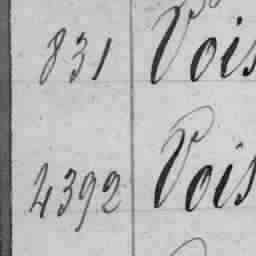 831 Vois
4392 Vois